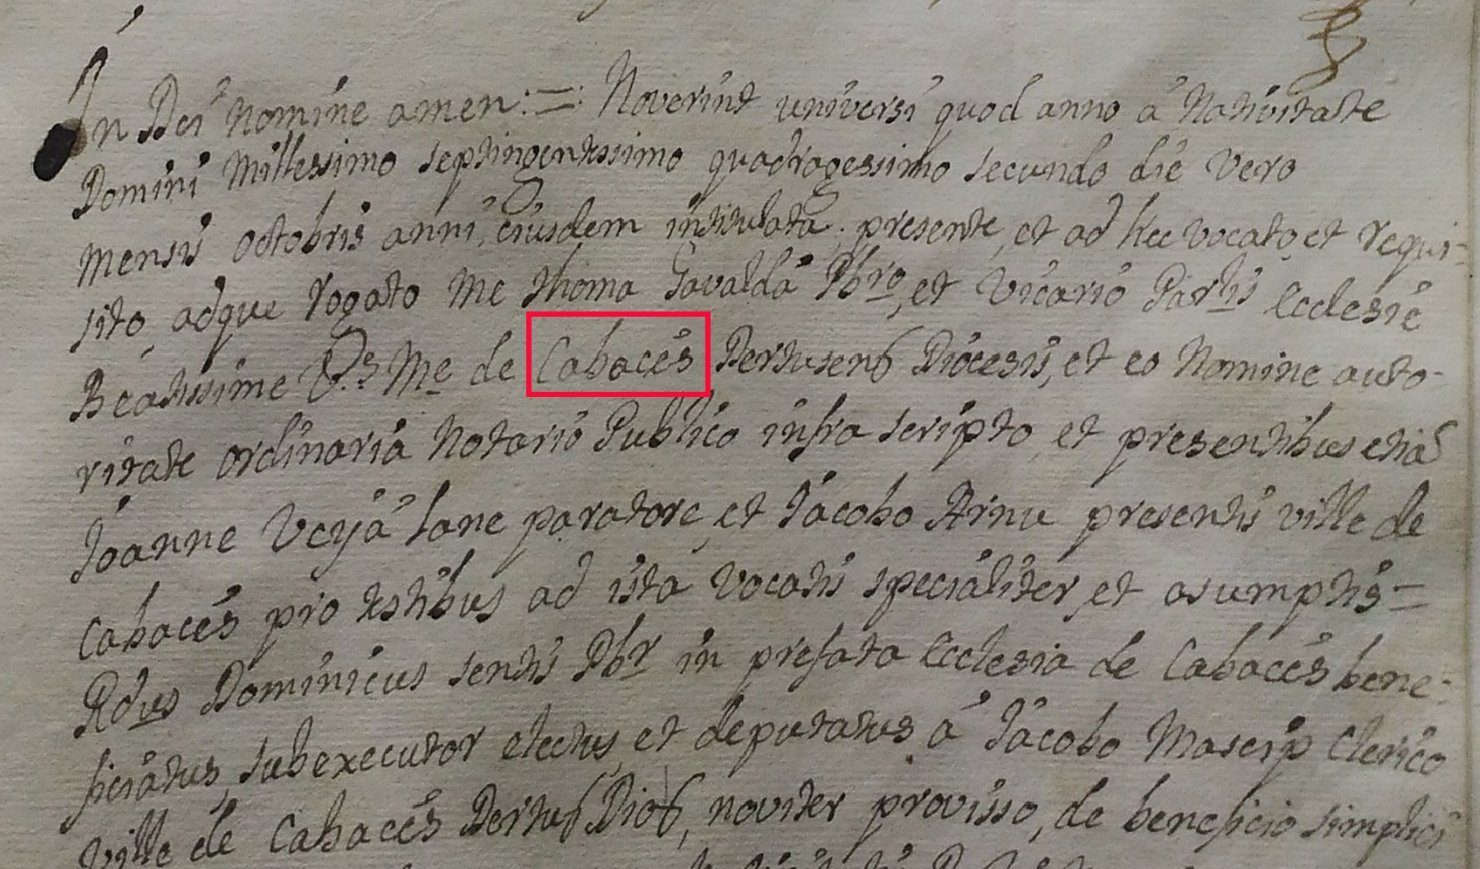 In Dei Nomine amen:=: Noverint universi quod anno à Nativitate
Domini Millessimo septingentessimo quadragessimo secundo die vero
mensis octobris anni, eiusdem intitulata; presente, et ad hec vocato, et requi=
sito, adque rogato Me Thoma Gavaldà Pbro, et Vicario Parlis Ecclesie
Beatissime V.s Me de Cabacès Dertusens Diocesis, et eo Nomine auto-
ritate ordinaria Notario Publico infra scripto, et presentibus etia
Joanne Veyà lane paratore, et Jacobo Arnu presentis ville de
Cabacès pro testibus ad ista vocatis specialiter, et asumptis=
Rdus Dominicus sentis Pbr in prefata Ecclesia de Cabacès bene=
ficiatus, subexecutor electus, et deputatus à Jacobo Mascip Clerico
Ville de Cabacès Dertus Dios, noviter provisso, de beneficio simplici